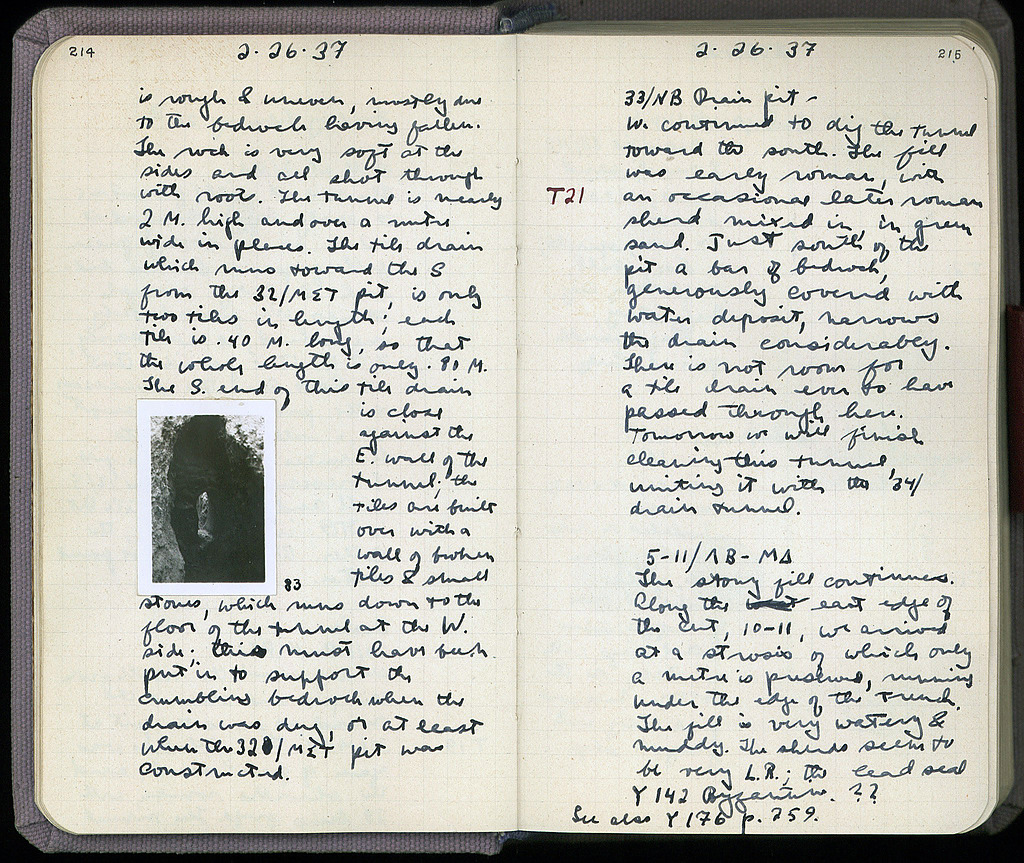 214
2·26·37
is rough & uneven, mostly due
to the bedrock having fallen.
The rock is very soft at the
sides and all shot through
with roots. The tunnel is nearly
2 M. high and over a metre
wide in places. The tile drain
which runs toward the S
from the 32/ΜΣΤ pit, is only
two tiles in length; each
tile is .40 M. long, so that
the whole length is only .80 M.
The S. end of this tile drain
is close
against the
E. wall of the
tunnel; the
tiles are built
over with a
wall of broken
tiles & small
83
stones, which runs down to the
floor of the tunnel at the W.
side; this must have been
put in to support the
crumbling bedrock when the
drain was dug, or at least
when the 32/ΜΣΤ pit was
constructed.
2·26·37
215
33/ΝΒ Drain pit –
We continued to dig the tunnel
toward the south. The fill
was early roman, with
T21
an occasional later roman
sherd mixed in, in green
sand. Just south of the
pit a bar of bedrock,
generously covered with
water deposit, narrows
the drain considerably.
There is not room for
a tile drain ever to have
passed through here.
Tomorrow we will finish
cleaning this tunnel,
uniting it with the '34/
drain tunnel.
5-11/ΛΒ-ΜΔ
The stony fill continues.
Along the east edge of
the cut, 10-11, we arrived
at a strosis of which only
a metre is preserved, running
under the edge of the trench.
The fill is very watery &
muddy. The sherds seem to
be very L.R.; the lead seal
Υ 142 Byzantine. ??
See also Υ 176 p. 259.